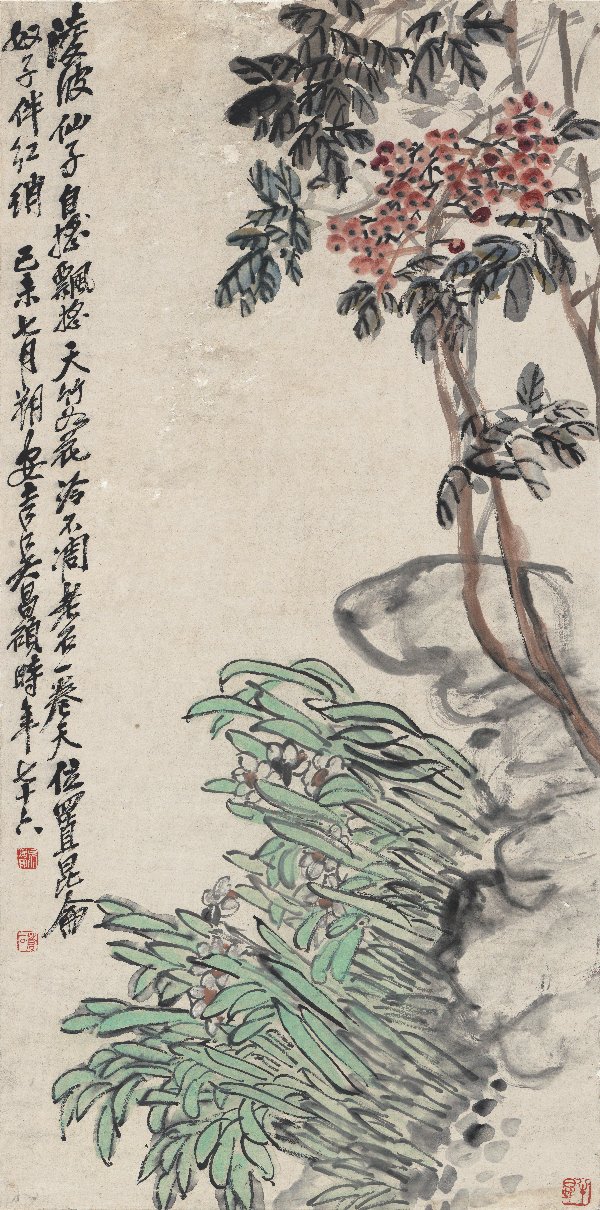 凌波仙子自搖飄搖天竹如花冷不凋老石一卷天位置昆侖
奴子伴紅綃 己未七月朔安吉吳昌碩時年七十六